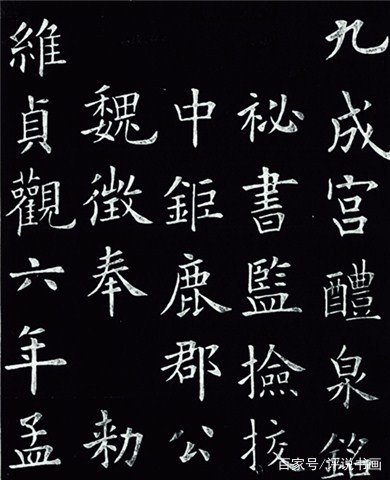 九成宫醴泉銘
祕書監撿挍
中鉅鹿郡公
魏徵奉勑
維貞觀六年孟
百家号/评说书画